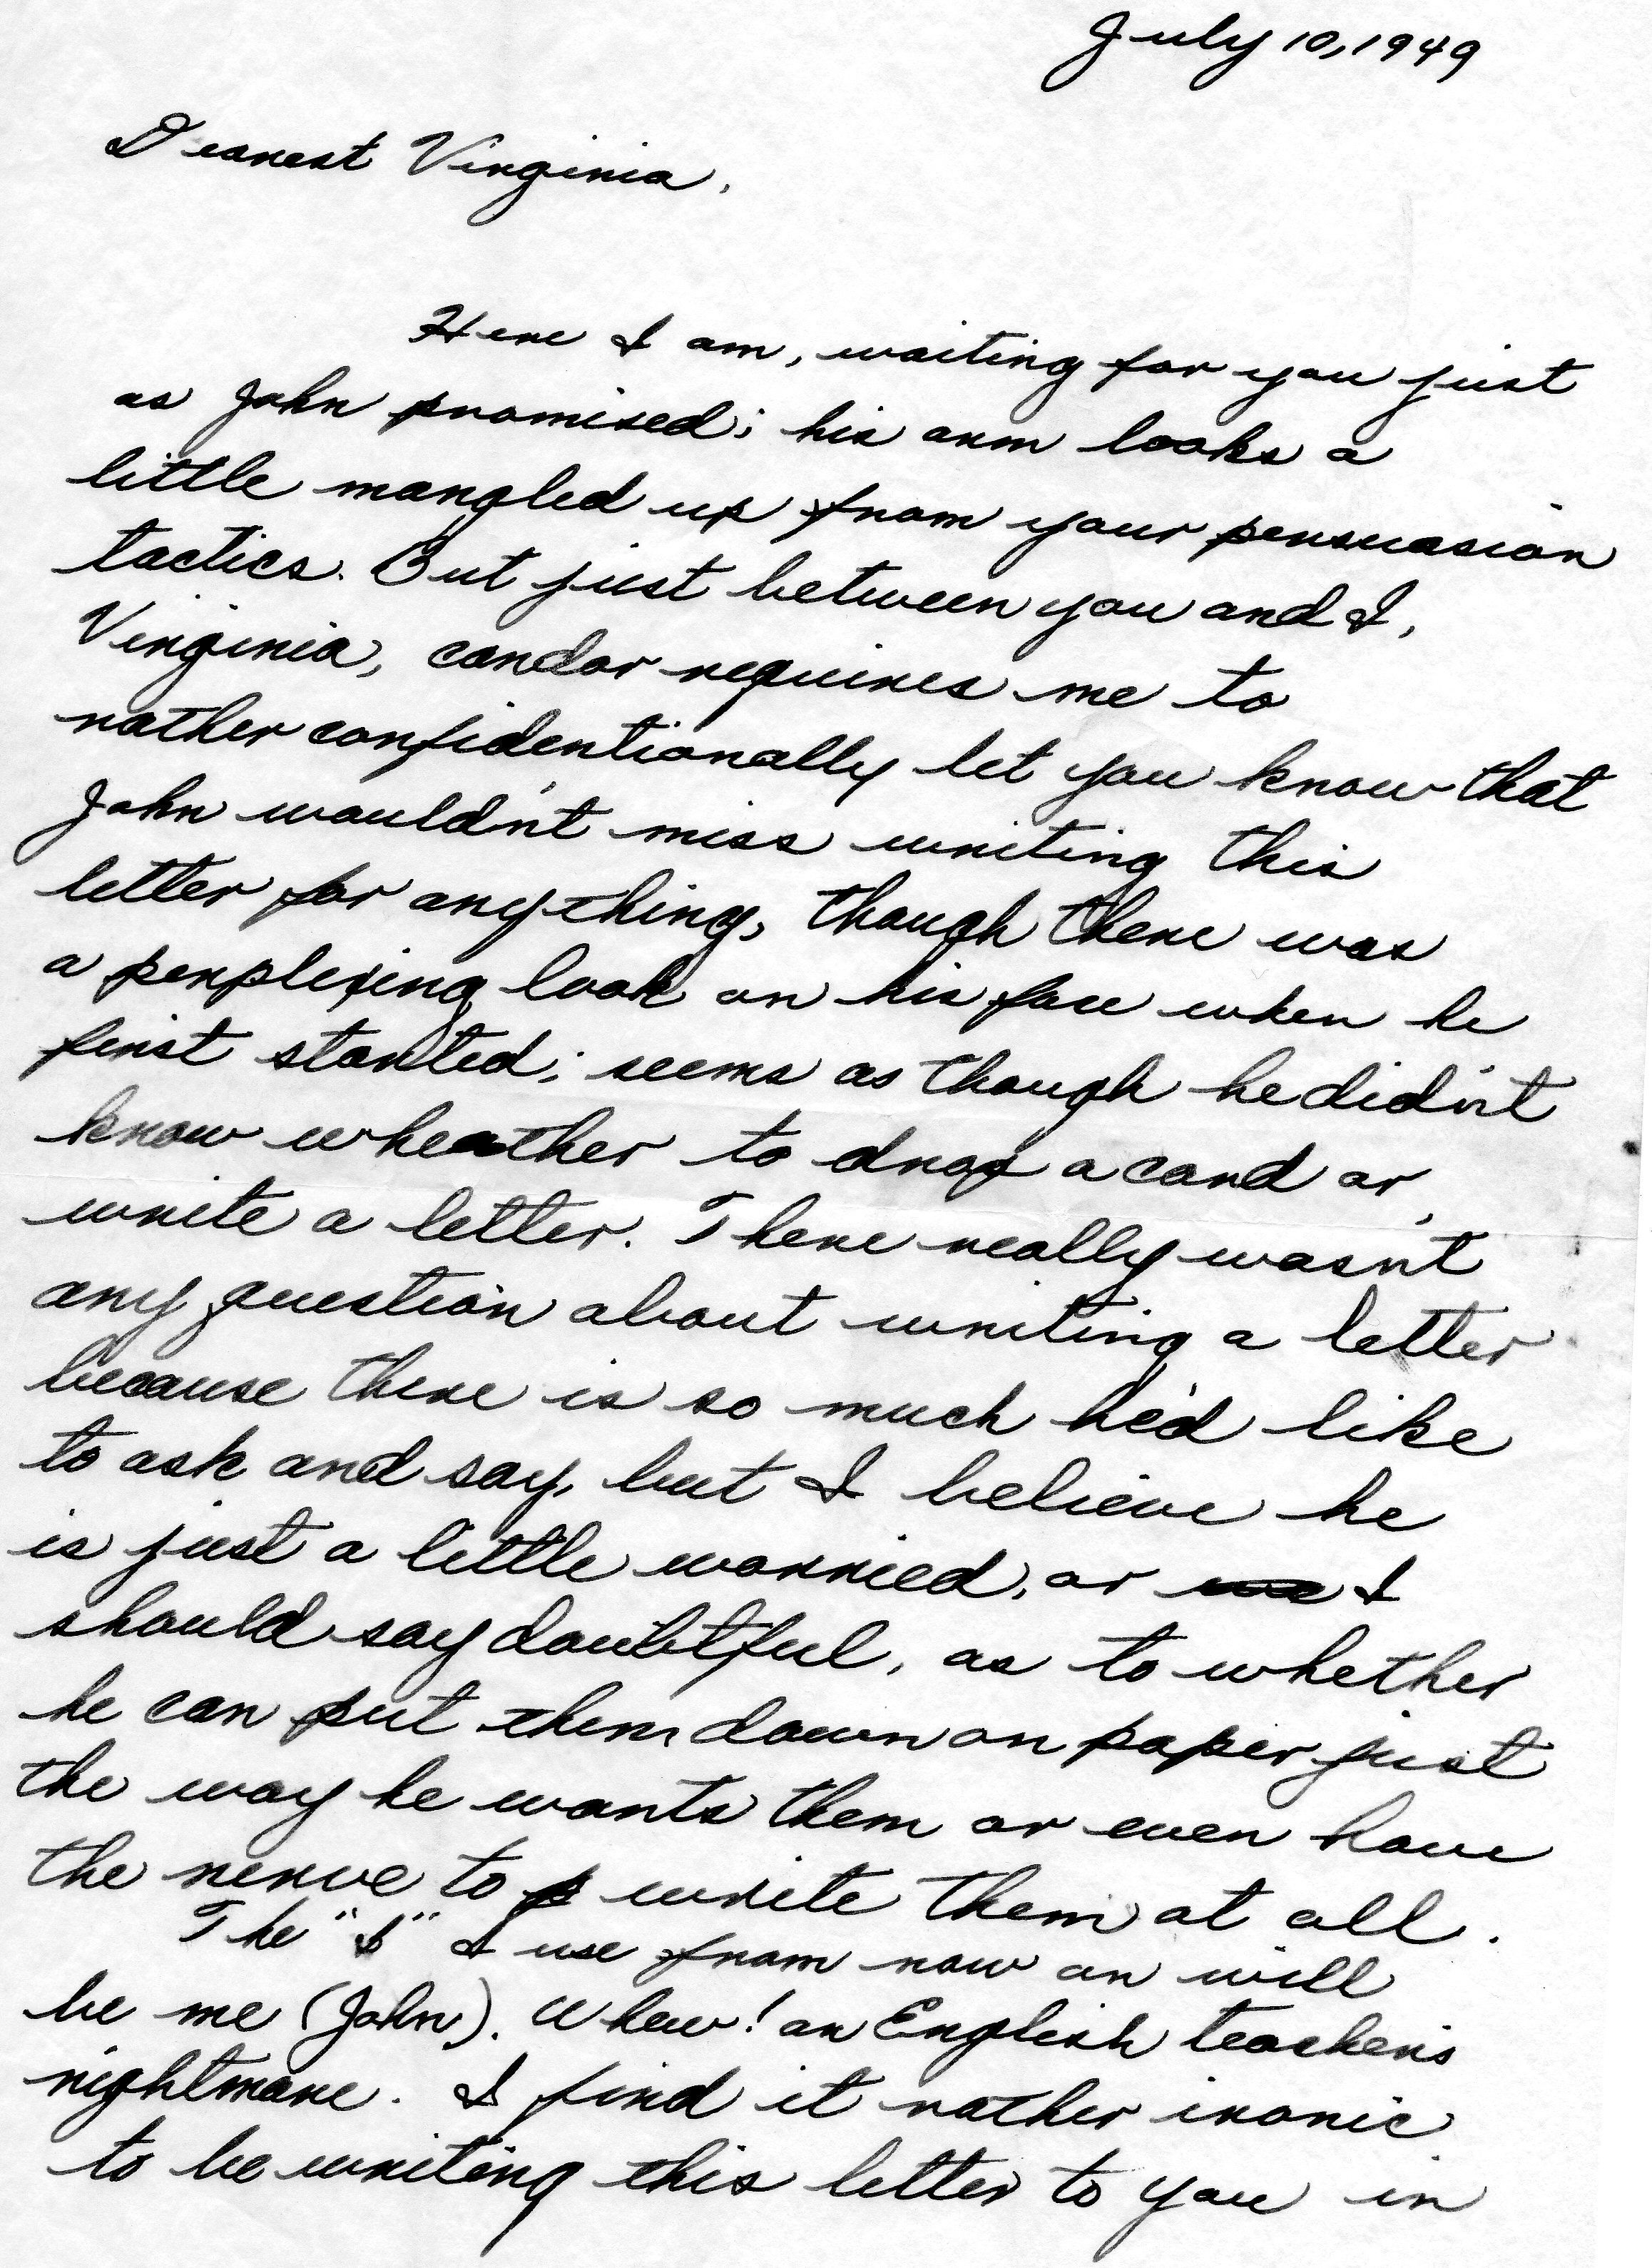 July 10, 1949
Dearest Virginia,
Here I am, waiting for you just
as John promised; his arm looks a
little mangled up from your persuasion
tactics. But just between you and I,
Virginia, candor requires me to
rather confidentionally let you know that
John wouldn't miss writing this
letter for anything, though there was
a perplexing look on his face when he
first started; seems as though he didn't
know wheather to drop a card or
write a letter. There really wasn't
any question about writing a letter
because there is so much he'd like
to ask and say, but I believe he
is just a little worried, or I
should say doubtful, as to whether
he can put them down on paper just
the way he wants them or even have
the nerve to write them at all.
The "I" I use from now on will
be me (John). Whew! an English teacher's
nightmare. I find it rather ironic
to be writing this letter to you in